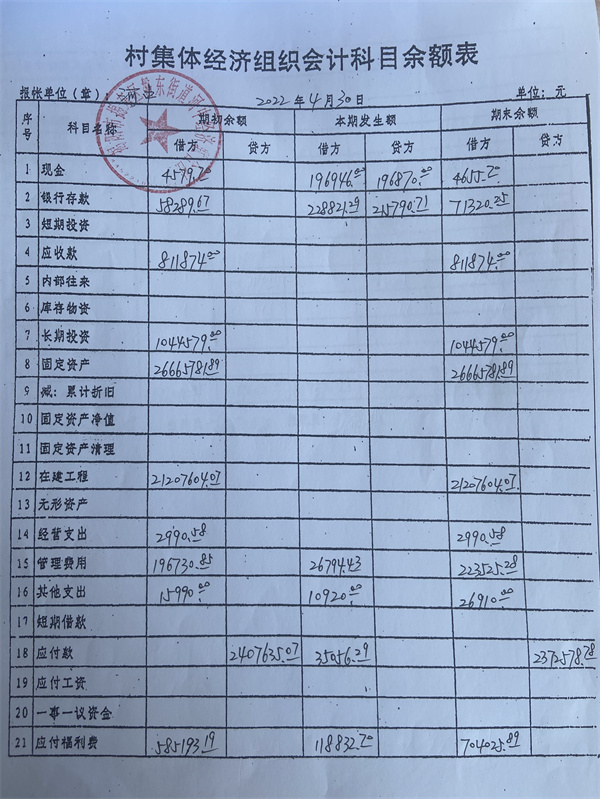 村集体经济组织会计科目余额表
报帐单位（章） 2022年4月30日 单位：元
序号 科目名称 期初余额 本期发生额 期末余额
借方 贷方 借方 贷方 借方 贷方
1 现金 4579.70 196946.00 196870.00 4655.70
2 银行存款 58289.67 228821.29 215790.71 71320.25
3 短期投资
4 应收款 811874.00 811874.00
5 内部往来
6 库存物资
7 长期投资 1044579.00 1044579.00
8 固定资产 26665781.89 26665781.89
9 减：累计折旧
10 固定资产净值
11 固定资产清理
12 在建工程 21207604.07 21207604.07
13 无形资产
14 经营支出 2990.58 2990.58
15 管理费用 196730.85 26794.43 223525.28
16 其他支出 15990.00 10920.00 26910.00
17 短期借款
18 应付款 2407635.07 35056.29 2372578.78
19 应付工资
20 一事一议资金
21 应付福利费 585193.19 118832.70 704025.89